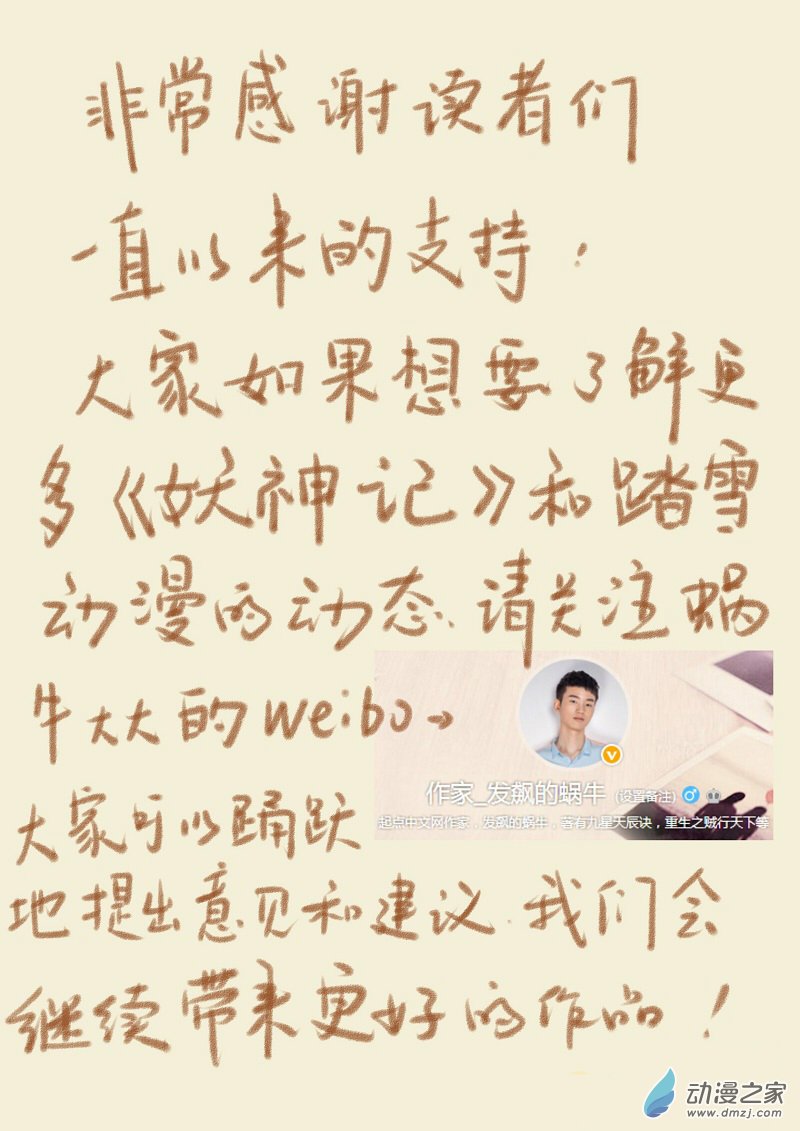 非常感谢读者们
一直以来的支持！
大家如果想要了解更
多《妖神记》和踏雪
动漫的动态、请关注蜗
牛大大的weibo→
作家_发飙的蜗牛 (设置备注)
起点中文网作家，发飙的蜗牛，著有九星天辰诀，重生之贼行天下等
大家可以踊跃
地提出意见和建议.我们会
继续带来更好的作品！
动漫之家
www.dmzj.com